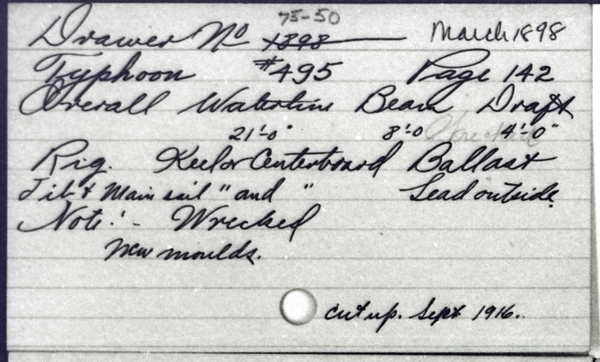 75-50
Drawer No 1898 March 1898
Typhoon #495 Page 142
Overall Waterline Beam Draft
21'-0" 8'-0 4'-0"
Rig. Keel or Centerboard Ballast
Jib & Main sail " and " Lead outside
Note:- Wrecked
New moulds.
Cut up. Sept 1916.